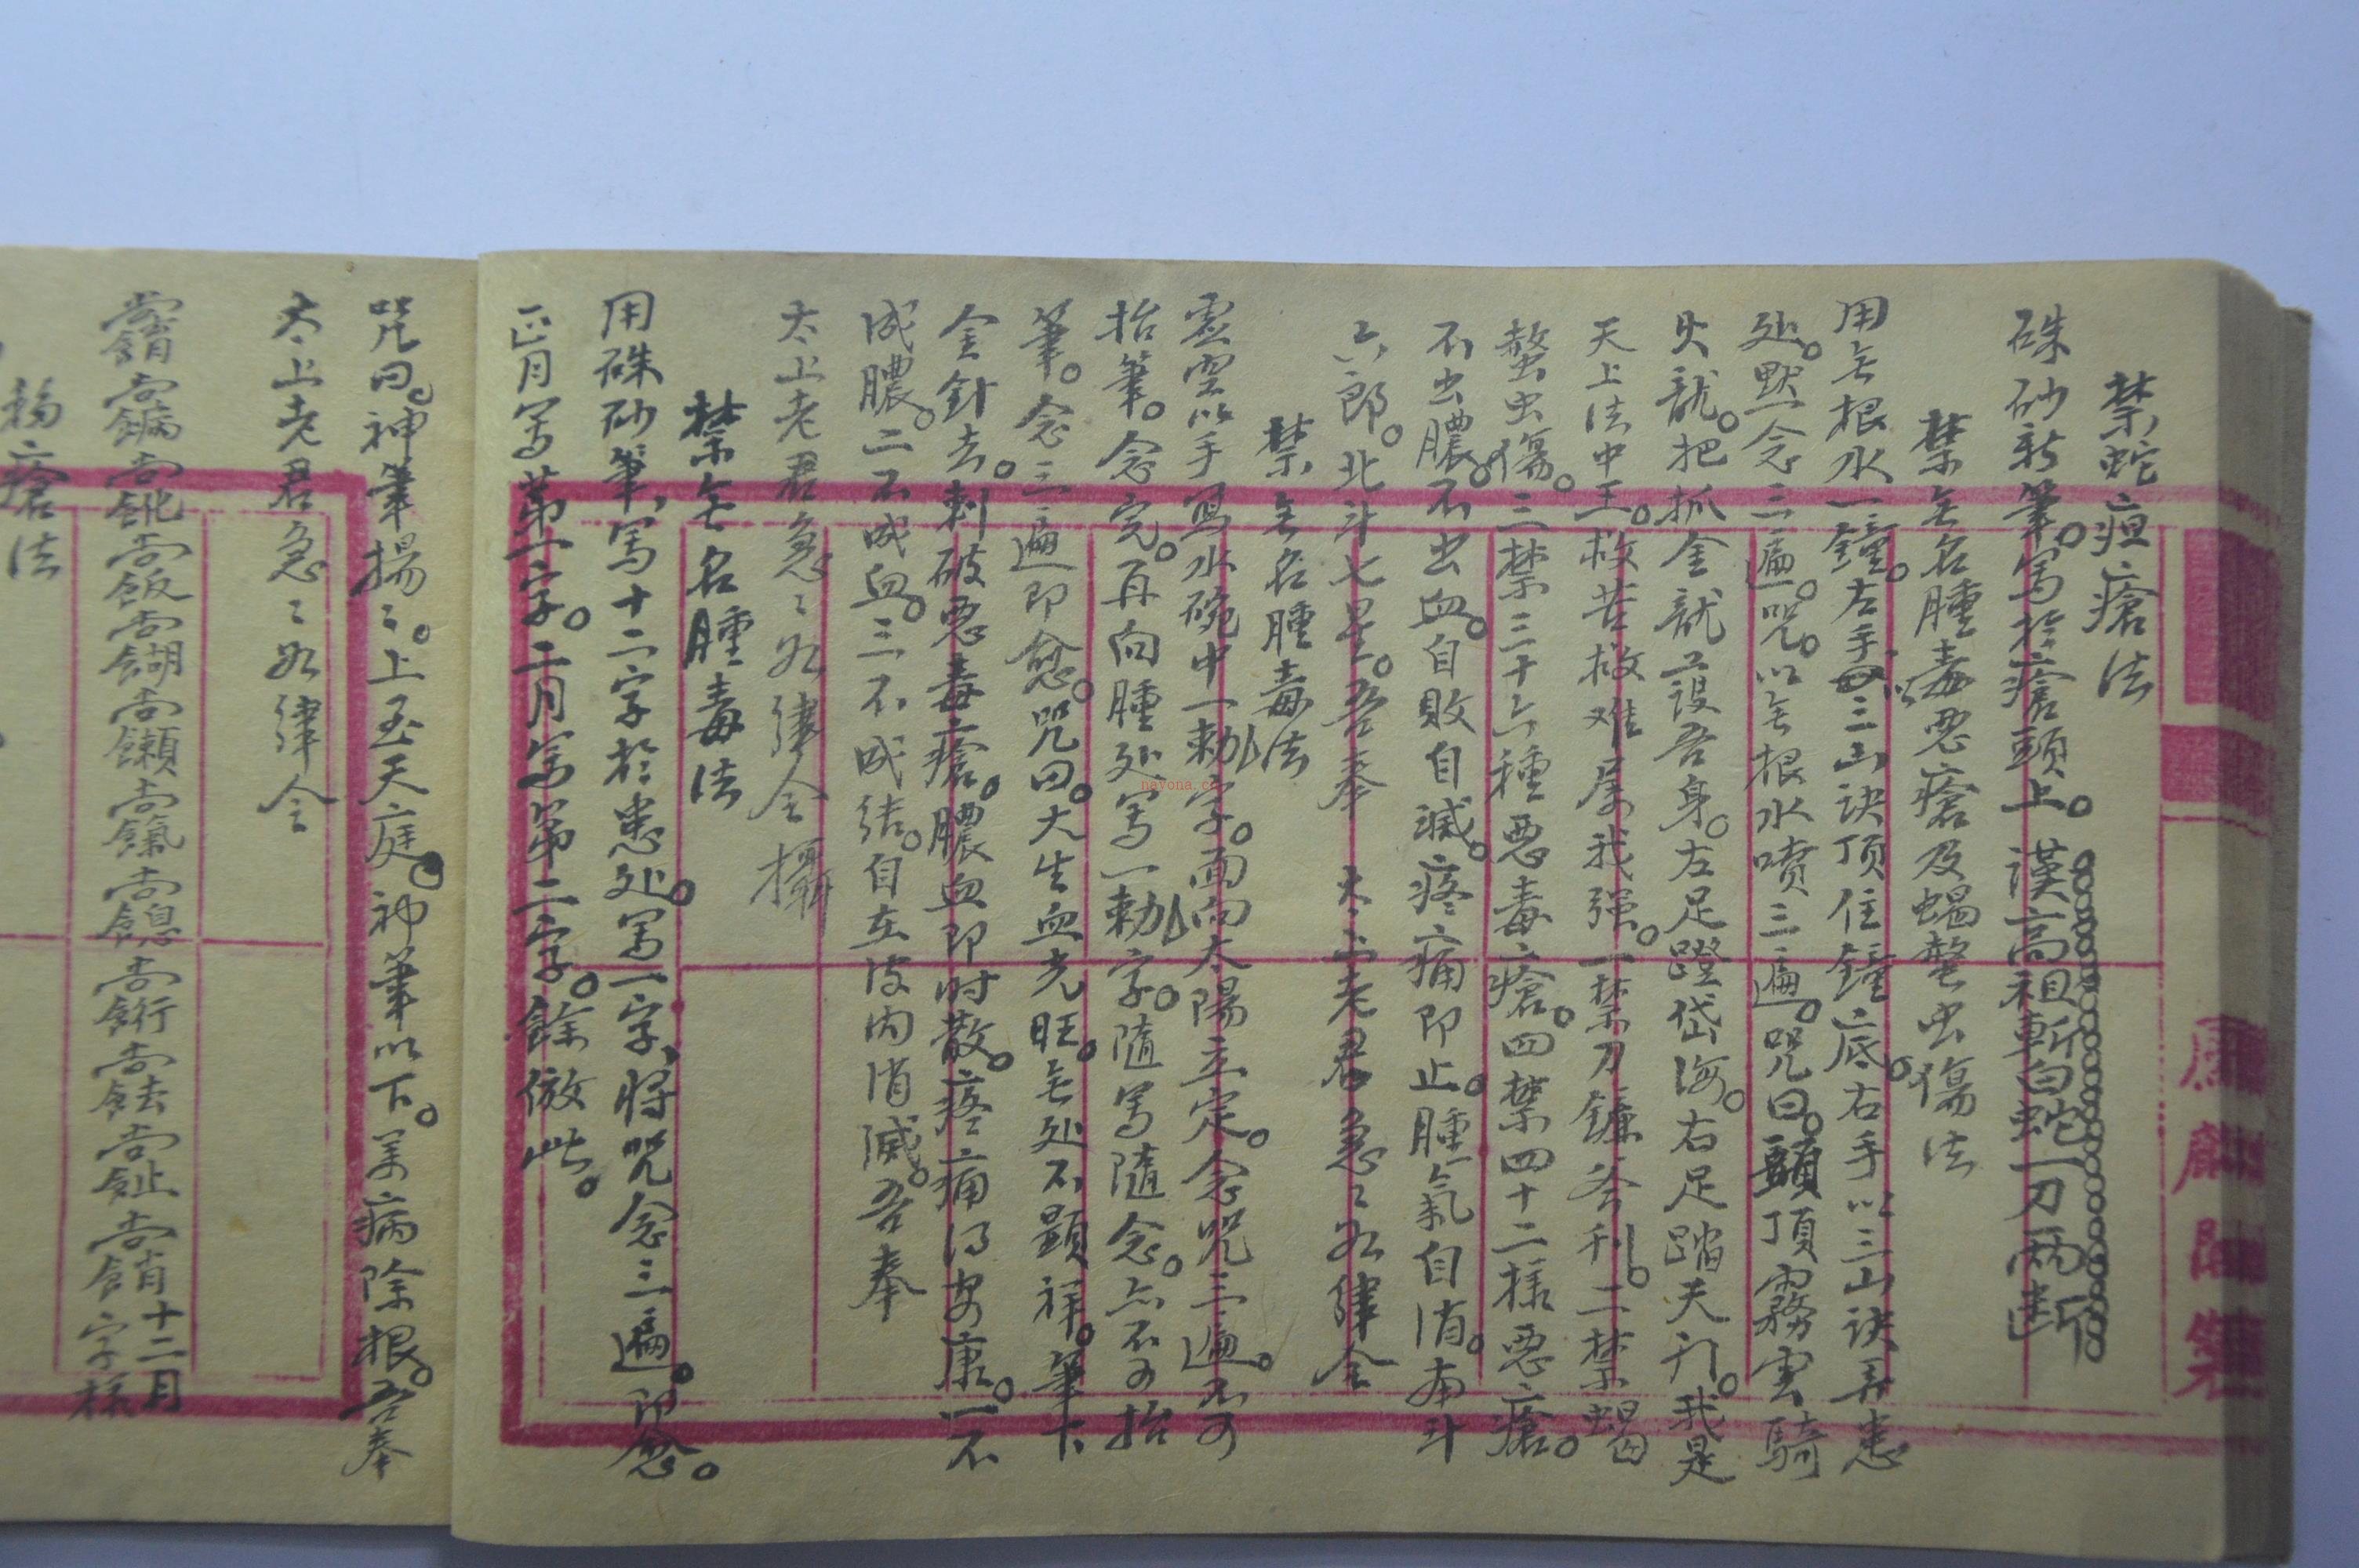 禁蛇疸瘡法
硃砂新筆。写於瘡頭上。漢高祖斬白蛇一刀兩断
禁무名腫毒惡瘡及蝎螫虫傷法
用无根水一鐘。左手以三山訣頂住鐘底。右手以三山訣弄患
处。默念三遍。咒。以无根水喷三遍。咒曰。頭頂霧雲騎
火龍。把抓金龍護吾身。左足蹬岱海。右足踏天门。我是
天上法中王。救苦救难居我强。一禁刀鐮斧利。二禁蝎
螫虫傷。三禁三十六種惡毒瘡。四禁四十二樣惡瘡。
不出膿。不出血。自敗自滅。疼痛即止。腫氣自消。南斗
六郎。北斗七星。吾奉 太上老君急〻如律令
禁无名腫毒法
雲空以手寫水碗中一勅字。面向太陽立定。念咒三遍。不可
抬筆。念完。再向腫处写一勅字。隨寫隨念。亦不可抬
筆。念三遍即愈。咒曰。大生血光旺。无处不顯祥。筆下
金針去。刺破惡毒瘡。膿血即时散。疼痛得安康。一不
成膿。二不成血。三不成结。自在皮内消滅。吾奉
太上老君急〻如律令攝
禁无名腫毒法
用硃砂筆、写十二字於患处。写一字、将咒念三遍。即愈。
正月写第一字。二月写第二字。餘倣此。
咒曰。神筆揚〻。上至天庭。神筆以下。百病除根。吾奉
太上老君急〻如律令
十二月
字樣
瘡法
nayona.cn